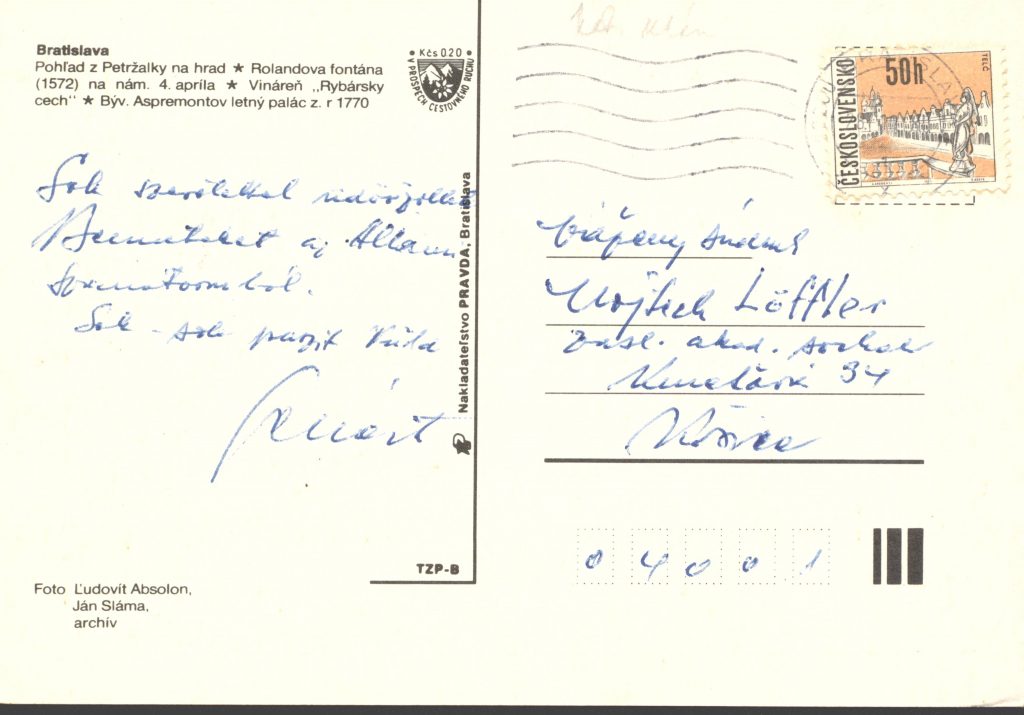 Bratislava
Pohľad z Petržalky na hrad ★ Rolandova fontána
(1572) na nám. 4. apríla ★ Vináreň „Rybársky
cech" ★ Býv. Aspremontov letný palác z. r 1770
Kčs 0.20
V PROSPECH CESTOVNÉHO RUCHU
Sok szeretettel üdvözöllek
Benneteket az Állami
Sok-sok puszit küld
Nakladateľstvo PRAVDA, Bratislava
TZP-B
Foto Ľudovít Absolon,
Ján Sláma,
archív
ČESKOSLOVENSKO
50h
TELČ
Vážený
Vojtech Löffler
zasl. akad. sochár
34
Košice
04001